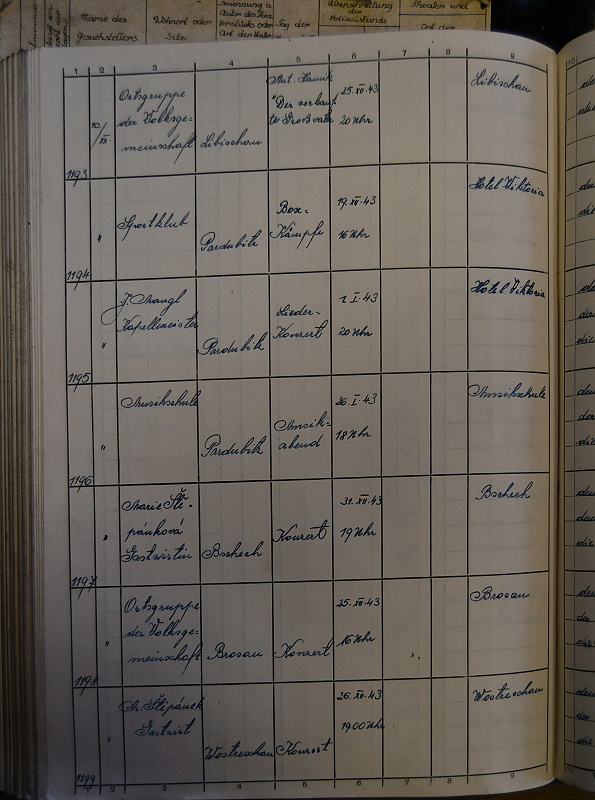 Name des
Gesuchstellers
Wohnort oder
Sitz
Benennung u.
Tag der
Überschreitung
der
Polizeistunde
Theaters und
Ort der
1 2 3 4 5 6 7 8 9 10
10./XII.
Ortsgruppe
der Volksge-
meinschaft
Libischau
"Der verkauf-
te Großvater
25.XII.43
20 Uhr
Libischau
1193
"
Sportklub
Pardubitz
Box-
Kämpfe
19.XII.43
16 Uhr
Hotel Viktoria
1194
"
Kapellmeister
Pardubitz
Lieder-
Konzert
1.I.43
20 Uhr
Hotel Viktoria
1195
"
Musikschule
Pardubitz
Musik-
abend
26.I.43
18 Uhr
Musikschule
1196
"
Marie Ště-
pánková
Gastwirtin
Bschech
Konzert
31.XII.43
19 Uhr
Bschech
1197
"
Ortsgruppe
der Volksge-
meinschaft
Brosau
Konzert
25.XII.43
16 Uhr
Brosau
1198
"
Štěpánek
Gastwirt
Wostreschau
Konzert
26.XII.43
19.00 Uhr
Wostreschau
1199
1 2 3 4 5 6 7 8 9 10